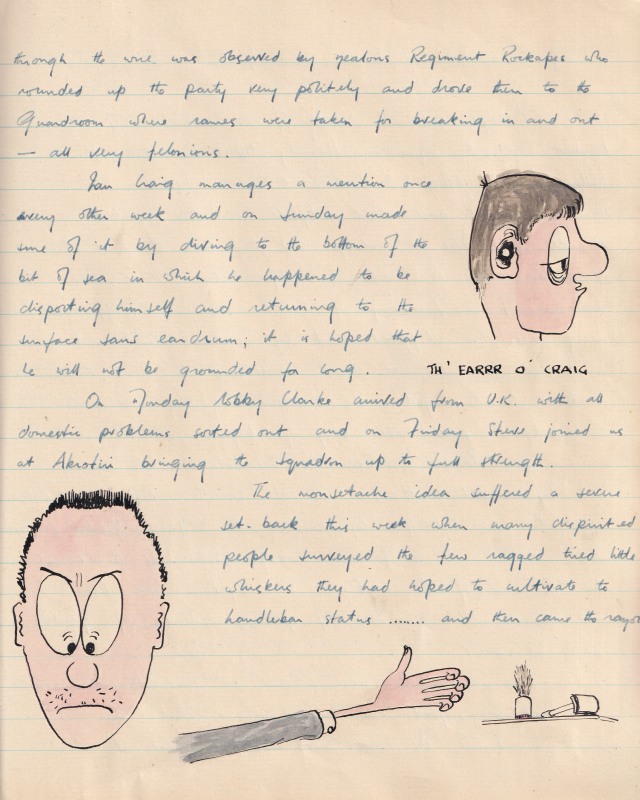 through the wire was observed by zealous Regiment Rockapes who
rounded up the party very politely and drove them to the
Guardroom where names were taken for breaking in and out
— all very felonious.
Ian Craig manages a mention once
every other week and on Sunday made
sure of it by diving to the bottom of the
bit of sea in which he happened to be
disporting himself and returning to the
surface sans eardrum; it is hoped that
he will not be grounded for long.
TH' EARRR O' CRAIG
On Monday Nobby Clarke arrived from U.K. with all
domestic problems sorted out and on Friday Steve joined us
at Akrotiri bringing the squadron up to full strength.
The mousetache idea suffered a severe
set-back this week when many dispirited
people surveyed the few ragged tired little
whiskers they had hoped to cultivate to
handlebar status ........ and then came the razor